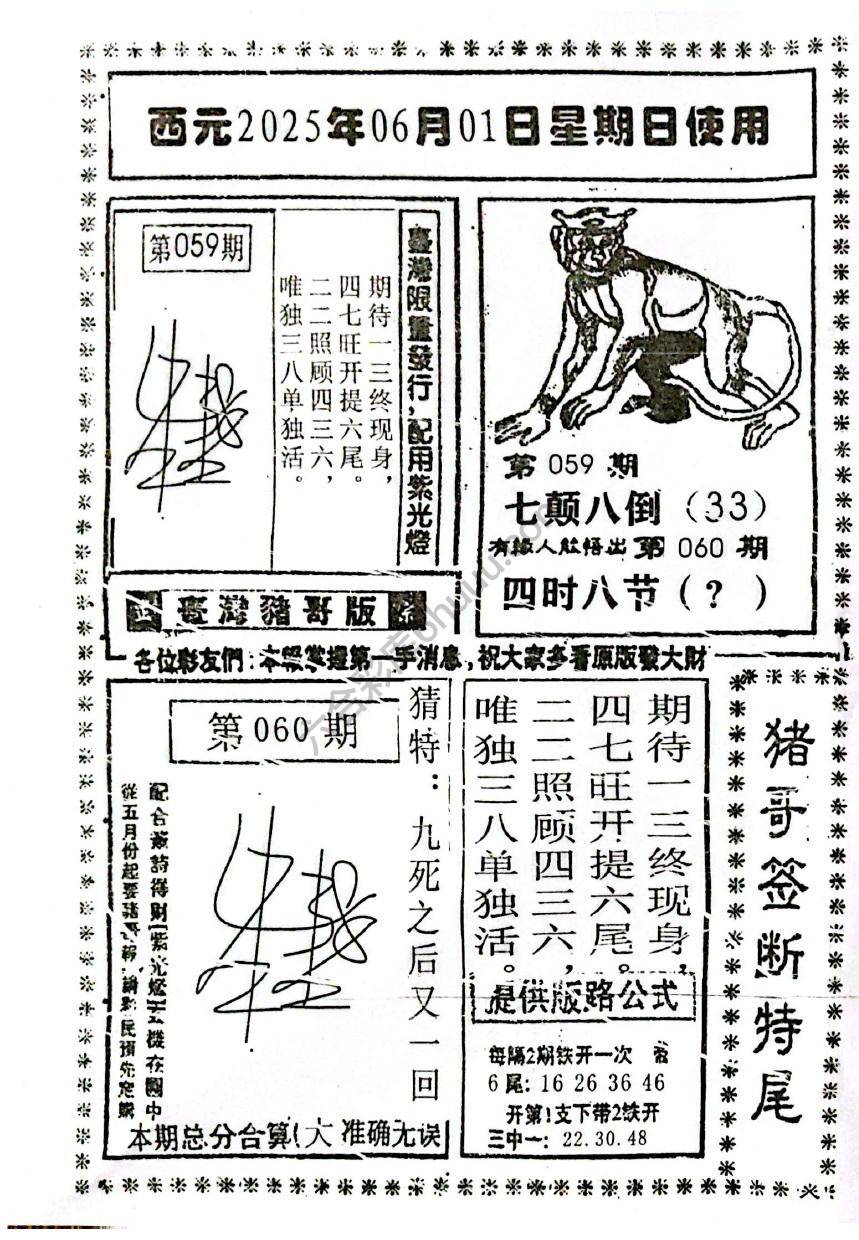 西元2025年06月01日星期日使用
第059期
期待一三终现身，
四七旺开提六尾。
二二照顾四三六，
唯独三八单独活。
臺灣限量發行，配用紫光燈
第 059 期
七颠八倒（33）
有緣人能悟出 第 060 期
四时八节（？）
臺灣豬哥版
各位彩友們：本照掌握第一手消息，祝大家多看原版發大財
第060期
猜特：九死之后又一回
配合簽詩得財
從五月份起要豬哥報
本期总分合算（大 准确无误
期待一三终现身，
四七旺开提六尾。
二二照顾四三六，
唯独三八单独活。
提供版路公式
每隔2期铁开一次
6尾：16 26 36 46
开第1支下带2铁开
三中一：22.30.48
猪哥签断特尾
六合彩库6huuu.com